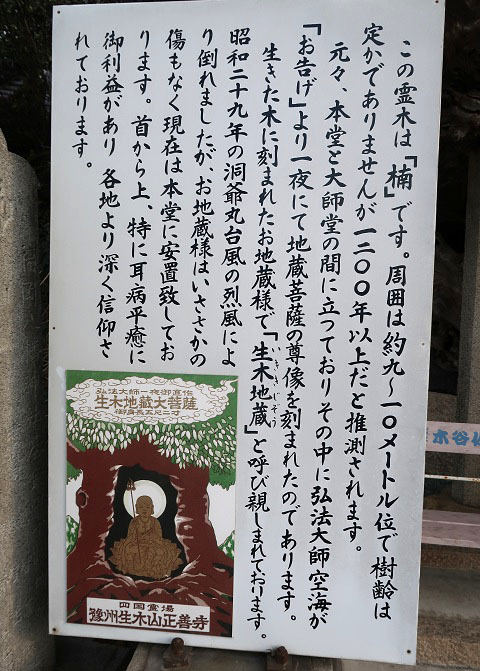 この霊木は「楠」です。周囲は約九~一〇メートル位で樹齢は
定かでありませんが一二〇〇年以上だと推測されます。
元々、本堂と大師堂の間に立っておりその中に弘法大師空海が
「お告げ」より一夜にて地蔵菩薩の尊像を刻まれたのであります。
生きた木に刻まれたお地蔵様で「生木地蔵」と呼び親しまれております。
いききじぞう
昭和二十九年の洞爺丸台風の烈風によ
り倒れましたが、お地蔵様はいささかの
傷もなく現在は本堂に安置致してお
ります。首から上、特に耳病平癒に
御利益があり各地より深く信仰さ
れております。
弘法大師一夜御直作
生木地蔵大菩薩
御身長五尺二寸
四国霊場
豫州生木山正善寺
木谷